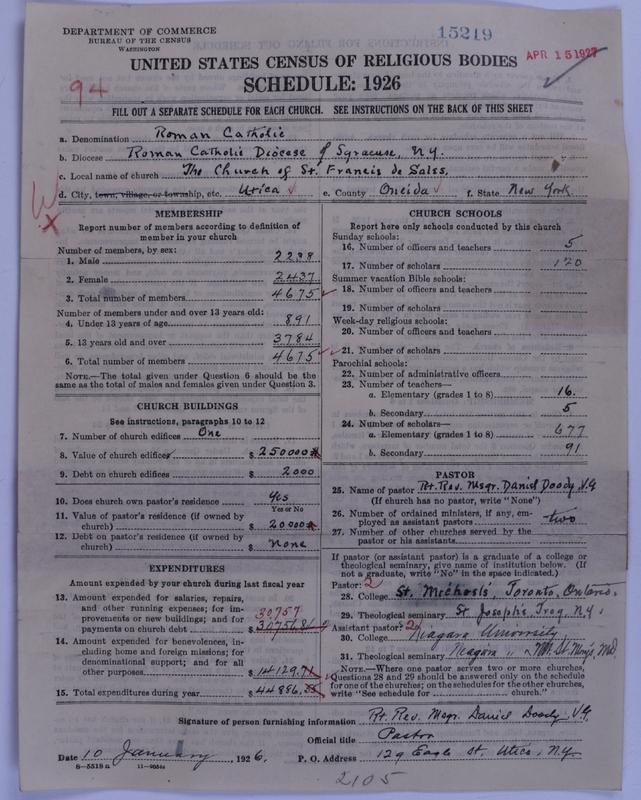 DEPARTMENT OF COMMERCE
BUREAU OF THE CENSUS
WASHINGTON
15219
APR 15 1927
UNITED STATES CENSUS OF RELIGIOUS BODIES
SCHEDULE: 1926
94
FILL OUT A SEPARATE SCHEDULE FOR EACH CHURCH. SEE INSTRUCTIONS ON THE BACK OF THIS SHEET
a. Denomination Roman Catholic
b. Diocese Roman Catholic Diocese of Syracuse, N.Y.
c. Local name of church The Church of St. Francis de Sales.
d. City, town, village, or township, etc. Utica e. County Oneida f. State New York
MEMBERSHIP
Report number of members according to definition of
member in your church
Number of members, by sex:
1. Male 2238
2. Female 2437
3. Total number of members 4675
Number of members under and over 13 years old:
4. Under 13 years of age 891
5. 13 years old and over 3784
6. Total number of members 4675
NOTE.—The total given under Question 6 should be
same as the total of males and females given under Question 3.
CHURCH BUILDINGS
See instructions, paragraphs 10 to 12
7. Number of church edifices One
8. Value of church edifices $ 250000
9. Debt on church edifices $ 2000
10. Does church own pastor's residence yes
Yes or No
11. Value of pastor's residence (if owned by
church) $ 20000
12. Debt on pastor's residence (if owned by
church) $ none
EXPENDITURES
Amount expended by your church during last fiscal year
13. Amount expended for salaries, repairs,
and other running expenses; for im-
provements or new buildings; and for
payments on church debt $ 30757
14. Amount expended for benevolences, in-
cluding home and foreign missions; for
denominational support; and for all
other purposes $ 14129.71
15. Total expenditures during year $ 44886.
CHURCH SCHOOLS
Report here only schools conducted by this church
Sunday schools:
16. Number of officers and teachers 5
17. Number of scholars 120
Summer vacation Bible schools:
18. Number of officers and teachers
19. Number of scholars
Week-day religious schools:
20. Number of officers and teachers
21. Number of scholars
Parochial schools:
22. Number of administrative officers
23. Number of teachers—
a. Elementary (grades 1 to 8) 16.
b. Secondary 5
24. Number of scholars—
a. Elementary (grades 1 to 8) 677
b. Secondary 91
PASTOR
25. Name of pastor Rt. Rev. Msgr. Daniel Doody V.G
(If church has no pastor, write "None")
26. Number of ordained ministers, if any, em-
ployed as assistant pastors two
27. Number of other churches served by the
pastor or his assistants
If pastor (or assistant pastor) is a graduate of a college or
theological seminary, give name of institution below. (If
not a graduate, write "No" in the space indicated.)
Pastor: 2
28. College St. Michael's, Toronto, Ontario.
29. Theological seminary St Joseph's, Troy, N.Y.
Assistant pastor: 2
30. College Niagara University
31. Theological seminary Niagara " & Mt. St. Mary's, Md
NOTE.—Where one pastor serves two or more churches,
Questions 28 and 29 should be answered only on the schedule
for one of the churches; on the schedules for the other churches,
write "See schedule for church."
Signature of person furnishing information Rt. Rev. Msgr. Daniel Doody, V.G.
Official title Pastor
Date 10 January, 1926. P. O. Address 129 Eagle St. Utica, N.Y.
8—5518a 11—9054a
2105